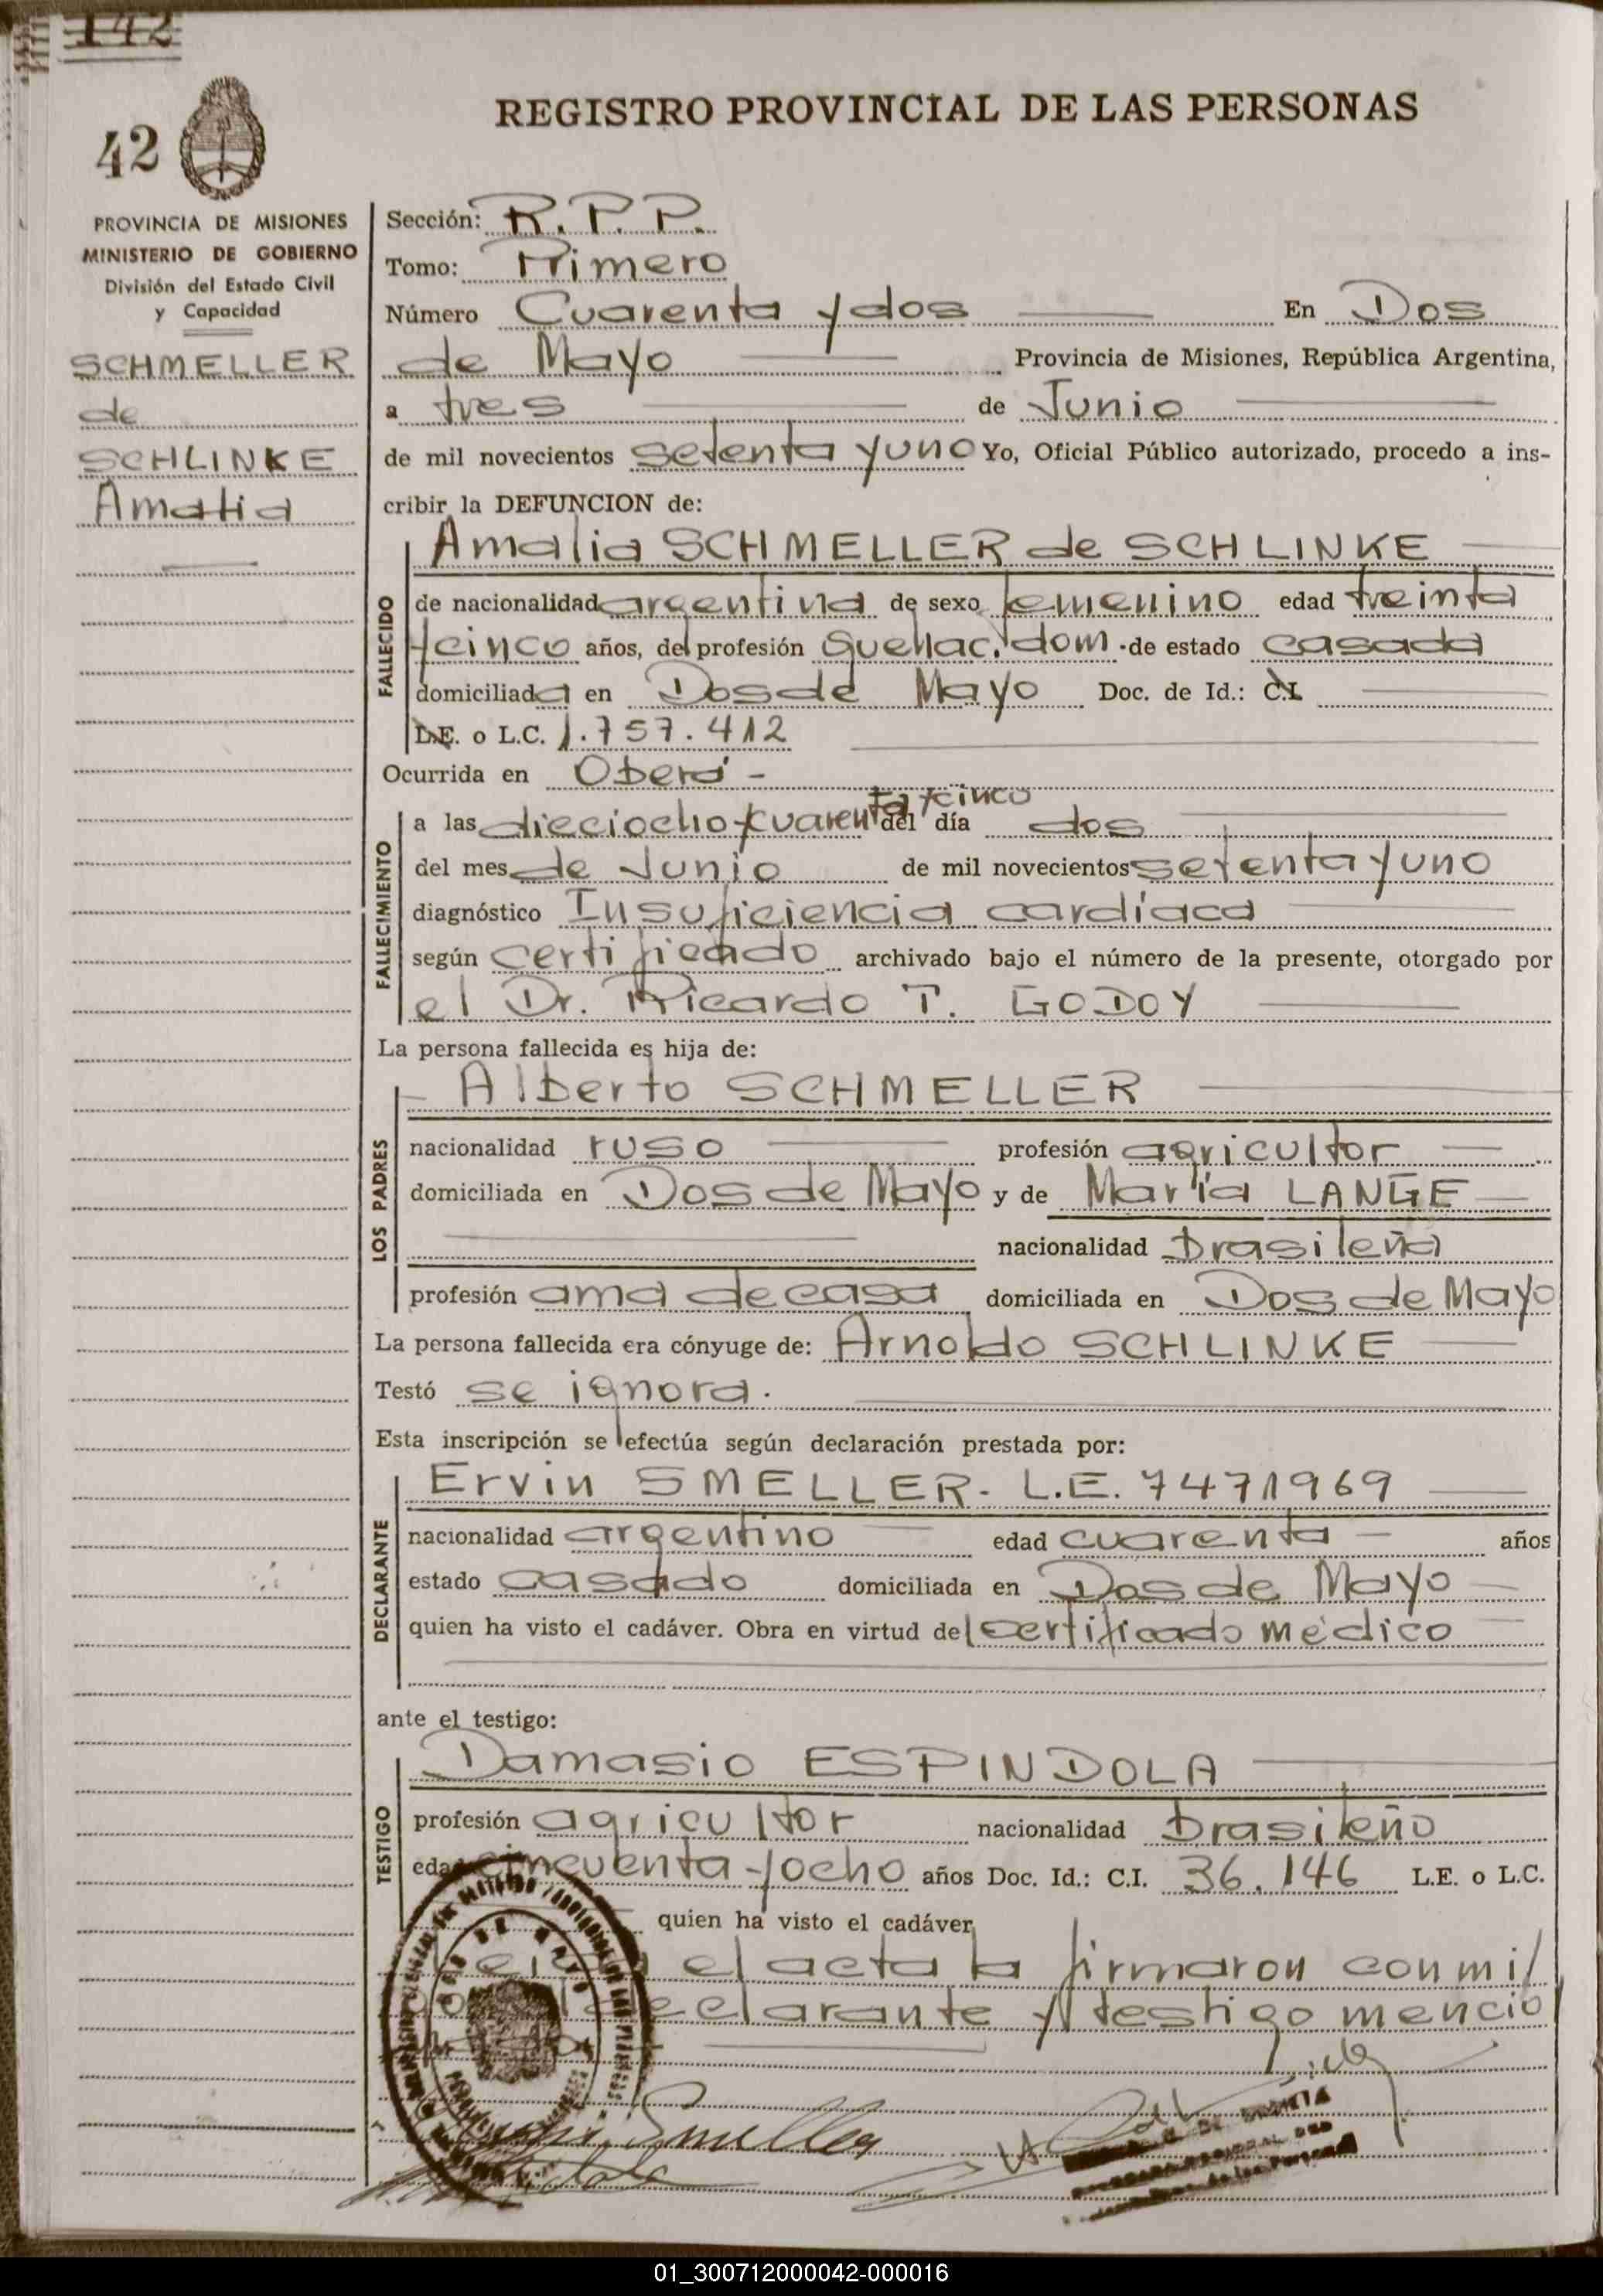 142
42
REGISTRO PROVINCIAL DE LAS PERSONAS
PROVINCIA DE MISIONES
MINISTERIO DE GOBIERNO
División del Estado Civil
y Capacidad
SCHMELLER
de
SCHLINKE
Amalia
Sección: R.P.P.
Tomo: Primero
Número Cuarenta y dos En Dos
de Mayo Provincia de Misiones, República Argentina,
a tres de Junio
de mil novecientos setenta y uno Yo, Oficial Público autorizado, procedo a ins-
cribir la DEFUNCION de:
FALLECIDO
Amalia SCHMELLER de SCHLINKE
de nacionalidad argentina de sexo femenino edad treinta
y cinco años, de profesión quehac. dom. de estado casada
domiciliada en Dos de Mayo Doc. de Id.: C.I.
L.E. o L.C. 1.757.412
Ocurrida en Oberá -
FALLECIMIENTO
a las dieciocho y cuarenta y cinco del día dos
del mes de Junio de mil novecientos setenta y uno
diagnóstico Insuficiencia cardíaca
según certificado archivado bajo el número de la presente, otorgado por
el Dr. Ricardo T. GODOY
La persona fallecida es hija de:
LOS PADRES
Alberto SCHMELLER
nacionalidad ruso profesión agricultor
domiciliada en Dos de Mayo y de María LANGE
nacionalidad brasileña
profesión ama de casa domiciliada en Dos de Mayo
La persona fallecida era cónyuge de: Arnoldo SCHLINKE
Testó se ignora.
Esta inscripción se efectúa según declaración prestada por:
DECLARANTE
Ervin SMELLER - L.E. 7471969
nacionalidad argentino edad cuarenta años
estado casado domiciliada en Dos de Mayo
quien ha visto el cadáver. Obra en virtud del certificado médico
ante el testigo:
TESTIGO
Damasio ESPINDOLA
profesión agricultor nacionalidad brasileño
edad cincuenta y ocho años Doc. Id.: C.I. 36.146 L.E. o L.C.
quien ha visto el cadáver
Leida el acta la firmaron conmi
declarante y testigo mencio
Smeller
01_300712000042-000016